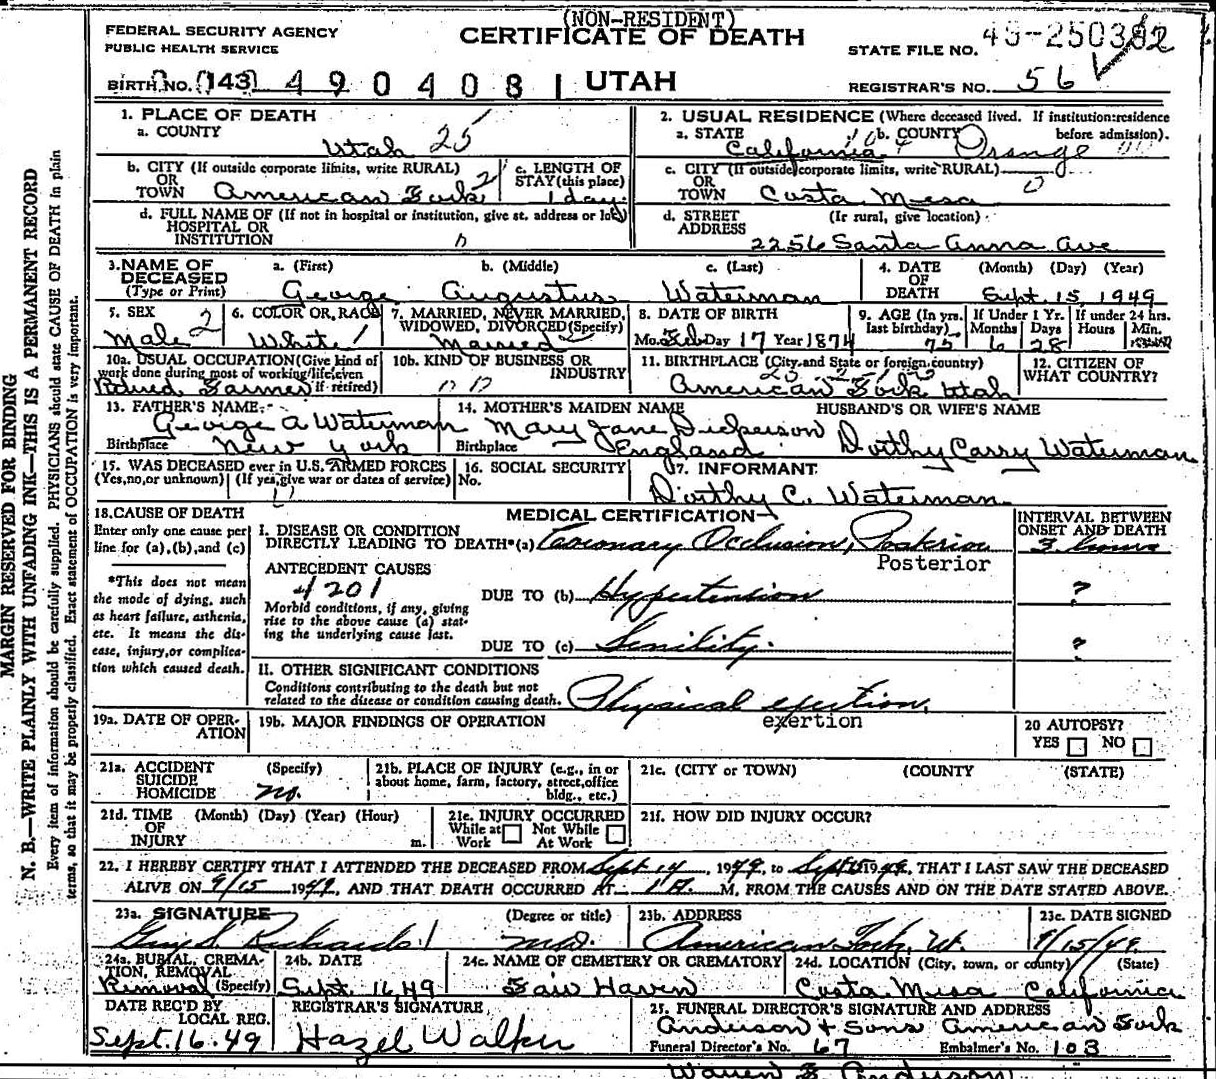 (NON-RESIDENT)
FEDERAL SECURITY AGENCY
PUBLIC HEALTH SERVICE
CERTIFICATE OF DEATH
STATE FILE NO. 49-250382
BIRTH NO. 143 490408 1 UTAH
REGISTRAR'S NO. 56
MARGIN RESERVED FOR BINDING
N. B.—WRITE PLAINLY WITH UNFADING INK—THIS IS A PERMANENT RECORD
Every item of information should be carefully supplied. PHYSICIANS should state CAUSE OF DEATH in plain
terms, so that it may be properly classified. Exact statement of OCCUPATION is very important.
1. PLACE OF DEATH
a. COUNTY
Utah 25
2. USUAL RESIDENCE (Where deceased lived. If institution:residence before admission).
a. STATE b. COUNTY
California Orange
b. CITY (If outside corporate limits, write RURAL)
OR
TOWN American Fork 2
c. LENGTH OF
STAY (this place)
1 day
c. CITY (If outside corporate limits, write RURAL)
OR
TOWN Costa Mesa
d. FULL NAME OF (If not in hospital or institution, give st. address or loc)
HOSPITAL OR
INSTITUTION
d. STREET (If rural, give location)
ADDRESS
2256 Santa Anna Ave
3. NAME OF DECEASED (Type or Print)
a. (First) b. (Middle) c. (Last)
George Augustus Waterman
4. DATE OF DEATH (Month) (Day) (Year)
Sept. 15, 1949
5. SEX
Male 2
6. COLOR OR RACE
White 1
7. MARRIED, NEVER MARRIED, WIDOWED, DIVORCED (Specify)
Married 2
8. DATE OF BIRTH
Mo. Feb Day 17 Year 1874
9. AGE (In yrs. last birthday) If Under 1 Yr. Months Days If under 24 hrs. Hours Min.
75 6 28
10a. USUAL OCCUPATION (Give kind of work done during most of working life, even if retired)
Retired Farmer
10b. KIND OF BUSINESS OR INDUSTRY
11. BIRTHPLACE (City and State or foreign country)
American Fork Utah
12. CITIZEN OF WHAT COUNTRY?
13. FATHER'S NAME
George A Waterman
Birthplace New York
14. MOTHER'S MAIDEN NAME
Mary Jane Dickerson
Birthplace England
HUSBAND'S OR WIFE'S NAME
Dorthy Carry Waterman
15. WAS DECEASED ever in U.S. ARMED FORCES
(Yes, no, or unknown) (If yes, give war or dates of service)
16. SOCIAL SECURITY
No.
17. INFORMANT
Dorthy C. Waterman
18. CAUSE OF DEATH
Enter only one cause per line for (a), (b), and (c)
*This does not mean the mode of dying, such as heart failure, asthenia, etc. It means the disease, injury, or complication which caused death.
MEDICAL CERTIFICATION
I. DISEASE OR CONDITION
DIRECTLY LEADING TO DEATH* (a) Coronary Occlusion, Posterior
Posterior
INTERVAL BETWEEN ONSET AND DEATH
3 hours
ANTECEDENT CAUSES
4201
Morbid conditions, if any, giving rise to the above cause (a) stating the underlying cause last.
DUE TO (b) Hypertension ?
DUE TO (c) Senility. ?
II. OTHER SIGNIFICANT CONDITIONS
Conditions contributing to the death but not
related to the disease or condition causing death. Physical exertion.
exertion
19a. DATE OF OPERATION
19b. MAJOR FINDINGS OF OPERATION
20 AUTOPSY?
YES NO
21a. ACCIDENT SUICIDE HOMICIDE (Specify)
no.
21b. PLACE OF INJURY (e.g., in or about home, farm, factory, street, office bldg., etc.)
21c. (CITY or TOWN) (COUNTY) (STATE)
21d. TIME OF INJURY (Month) (Day) (Year) (Hour) m.
21e. INJURY OCCURRED
While at Work Not While At Work
21f. HOW DID INJURY OCCUR?
22. I HEREBY CERTIFY THAT I ATTENDED THE DECEASED FROM Sept 14, 1949, to Sept 15 1949, THAT I LAST SAW THE DECEASED
ALIVE ON 9/15 1949, AND THAT DEATH OCCURRED AT 1 A. M, FROM THE CAUSES AND ON THE DATE STATED ABOVE.
23a. SIGNATURE (Degree or title)
Guy S. Richards M.D.
23b. ADDRESS
American Fork, Ut.
23c. DATE SIGNED
9/15/49
24a. BURIAL, CREMATION, REMOVAL (Specify)
Removal
24b. DATE
Sept. 16, 49
24c. NAME OF CEMETERY OR CREMATORY
Fair Haven
24d. LOCATION (City, town, or county) (State)
Costa Mesa California
DATE REC'D BY LOCAL REG.
Sept. 16-49
REGISTRAR'S SIGNATURE
Hazel Walker
25. FUNERAL DIRECTOR'S SIGNATURE AND ADDRESS
Anderson & Sons American Fork
Funeral Director's No. 67 Embalmer's No. 103
Warren B. Anderson